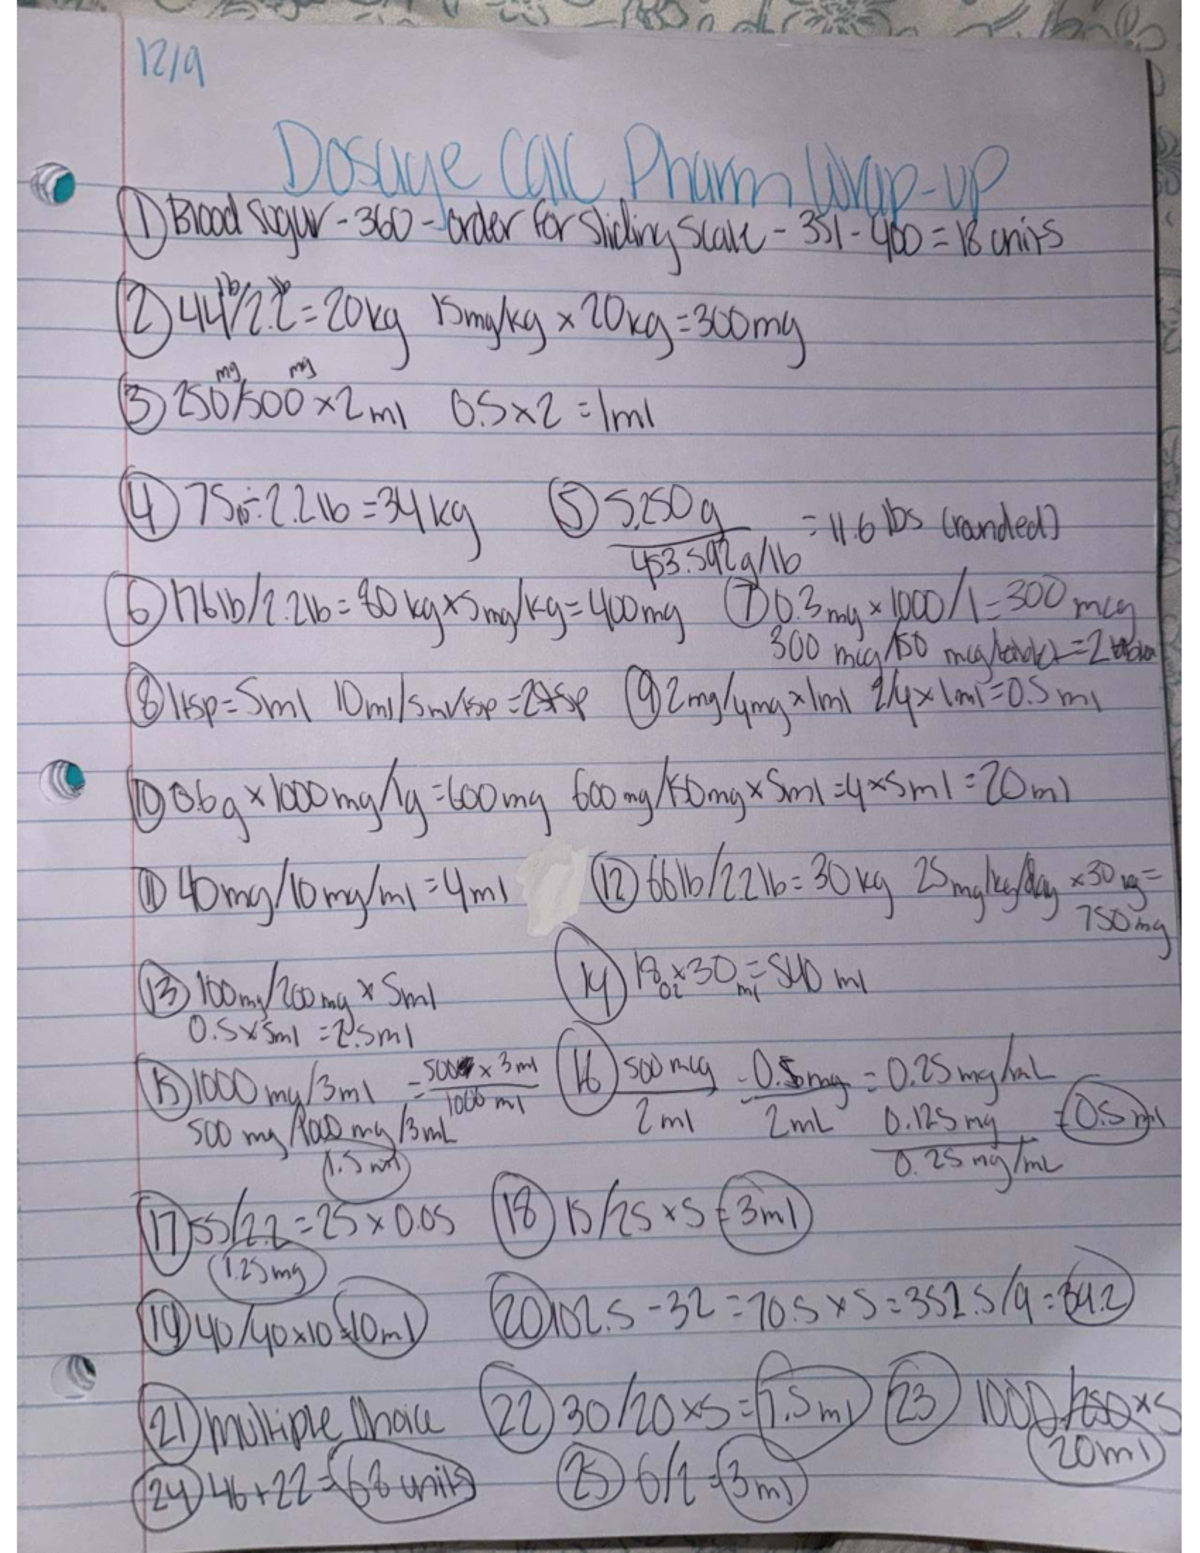 12/9
Dosage Calc Pharm Wrap-up
① Blood sugar - 360 - order for sliding scale - 351 - 400 = 18 units
② 44lb/2.2 = 20kg 15mg/kg × 20kg = 300mg
③ 250mg/500mg × 2ml 0.5 × 2 = 1ml
④ 75lb ÷ 2.2lb = 34kg ⑤ 5,250g / 453.592g/lb = 11.6 lbs (rounded)
⑥ 176lb/2.2lb = 80kg × 5mg/kg = 400mg ⑦ 0.3mg × 1000/1 = 300 mcg
300 mcg/150 mcg/tablet = 2
⑧ 1tsp = 5ml 10ml/5ml/tsp = 2tsp ⑨ 2mg/4mg × 1ml 2/4 × 1ml = 0.5ml
⑩ 0.6g × 1000mg/1g = 600mg 600mg/150mg × 5ml = 4 × 5ml = 20ml
⑪ 40mg/10mg/ml = 4ml ⑫ 66lb/2.2lb = 30kg 25mg/kg/day × 30kg =
750mg
⑬ 100mg/200mg × 5ml ⑭ 18oz × 30ml = 540 ml
0.5 × 5ml = 2.5ml
⑮ 1000 mg/3ml = 500 × 3ml / 1000 ml ⑯ 500mcg / 2ml = 0.5mg / 2mL = 0.25mg/mL
500 mg/1000 mg/3mL 0.125mg / 0.25mg/mL = 0.5ml
1.5ml
⑰ 55/2.2 = 25 × 0.05 ⑱ 15/25 × 5 = 3ml
1.25mg
⑲ 40/40 × 10 = 10ml ⑳ 102.5 - 32 = 70.5 × 5 = 352.5/9 = 39.2
㉑ Multiple Choice ㉒ 30/20 × 5 = 7.5ml ㉓ 1000/250 × 5
20ml
㉔ 46 + 22 = 68 units ㉕ 6/2 = 3ml